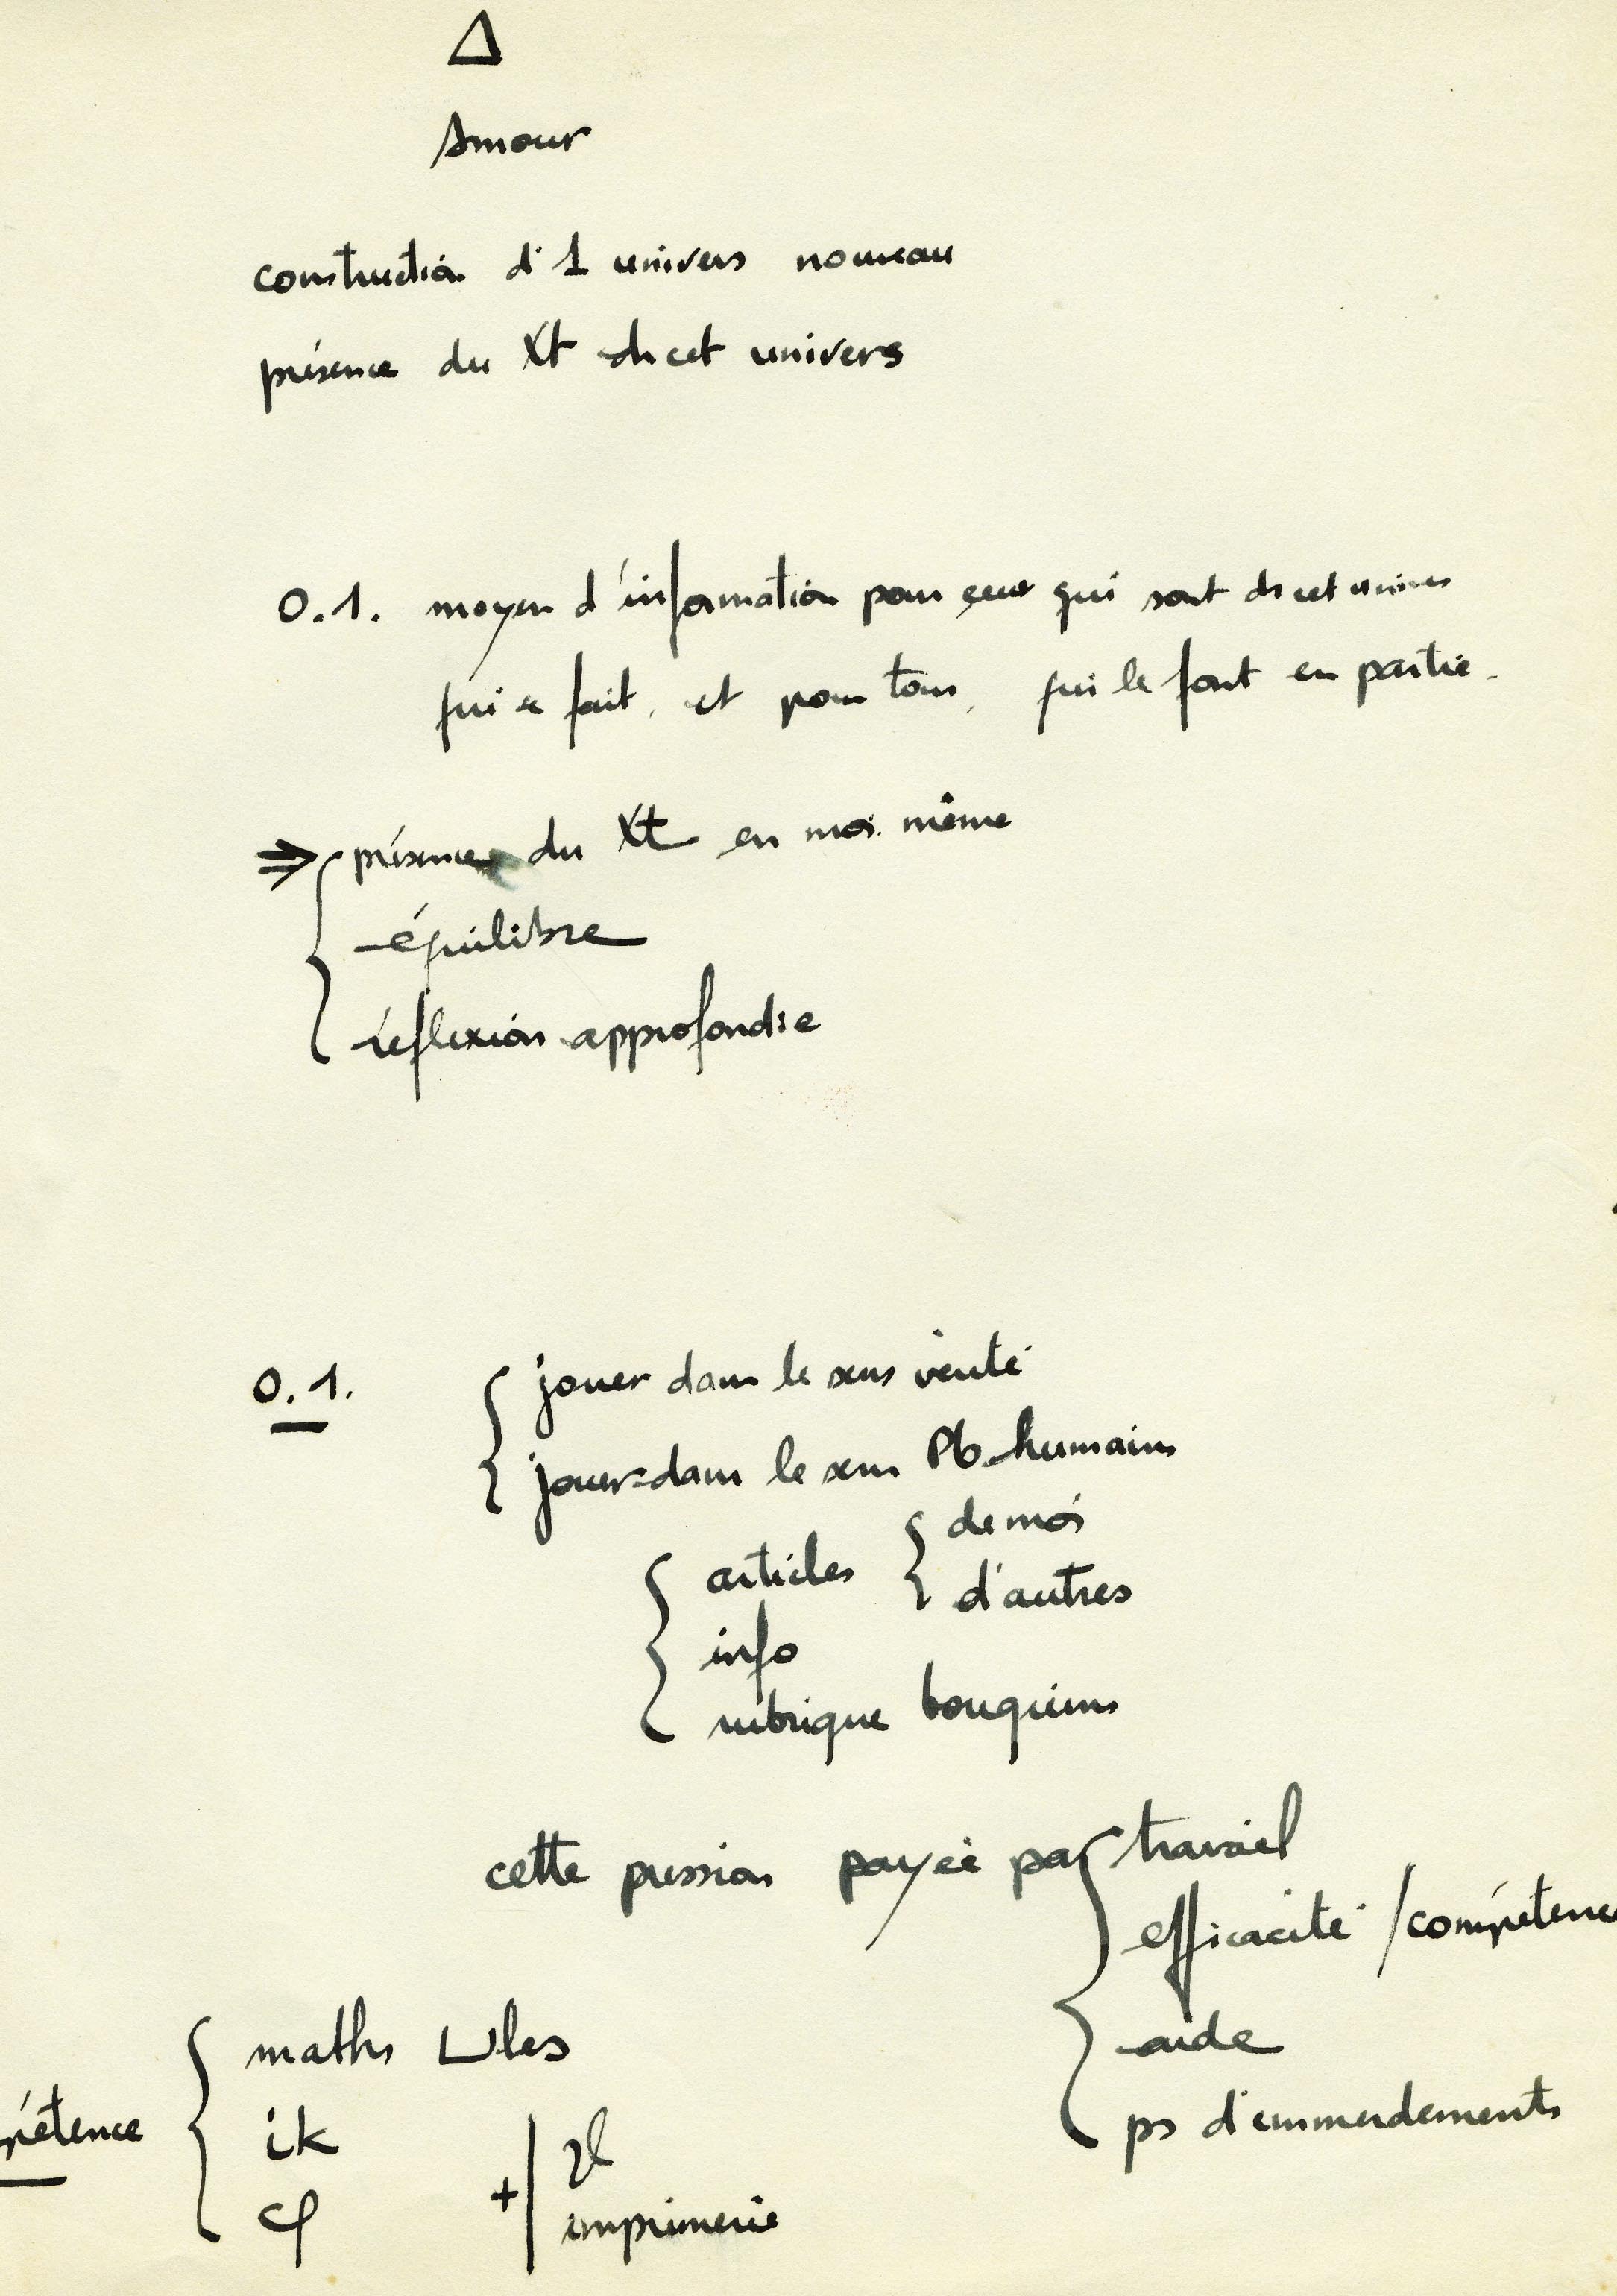 Δ
Amour
construction d'1 univers nouveau
présence du Xt ds cet univers
0.1. moyen d'information pour ceux qui sont ds cet univers
qui se fait, et pour tous, qui le font en partie.
⇒ { présence du Xt en moi même
équilibre
réflexion approfondie
0.1. { jouer dans le sens vérité
jouer dans le sens Pb humains
{ articles { de moi
d'autres
info
rubrique bouquins
cette pression payée par { travail
efficacité / compétence
aide
ps d'emmerdements
pétence { maths ⊔les
ik
φ + |
imprimerie